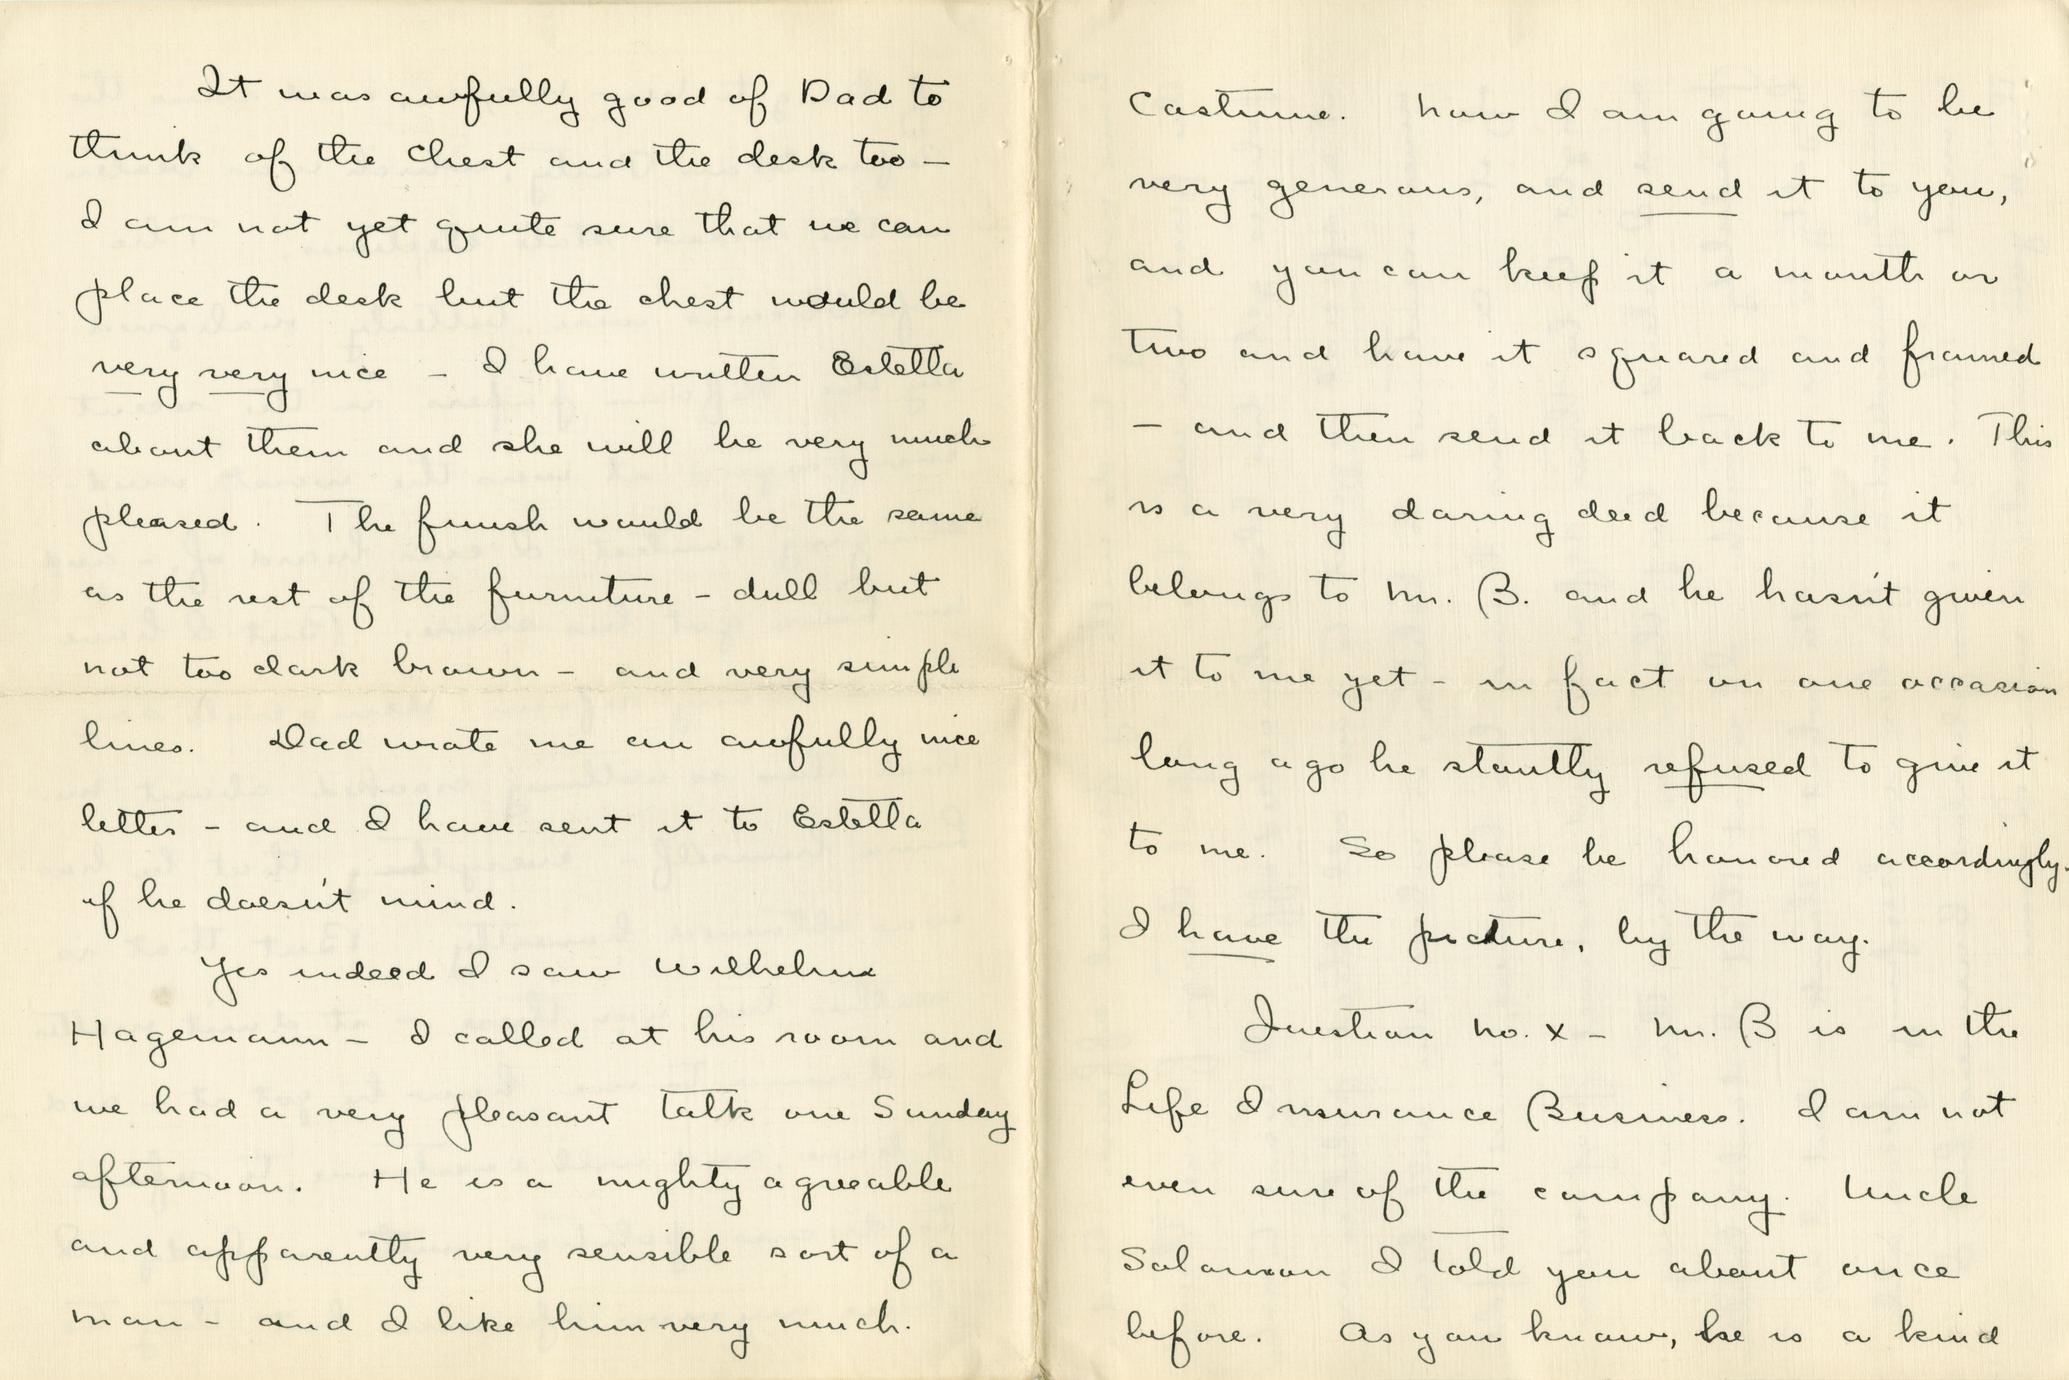 It was awfully good of Dad to
think of the chest and the desk too —
I am not yet quite sure that we can
place the desk but the chest would be
very very nice — I have written Estella
about them and she will be very much
pleased. The finish would be the same
as the rest of the furniture — dull but
not too dark brown — and very simple
lines. Dad wrote me an awfully nice
letter — and I have sent it to Estella
if he doesn't mind.
Yes indeed I saw Wilhelm
Hagemann — I called at his room and
we had a very pleasant talk one Sunday
afternoon. He is a mighty agreeable
and apparently very sensible sort of a
man — and I like him very much.
Costume. Now I am going to be
very generous, and send it to you,
and you can keep it a month or
two and have it squared and framed
— and then send it back to me. This
is a very daring deed because it
belongs to Mr. B. and he hasn't given
it to me yet — in fact on one occasion
long ago he stoutly refused to give it
to me. So please be honored accordingly.
I have the picture, by the way.
Question No. X — Mr. B is in the
Life Insurance Business. I am not
even sure of the company. Uncle
Solomon I told you about once
before. As you know, he is a kind